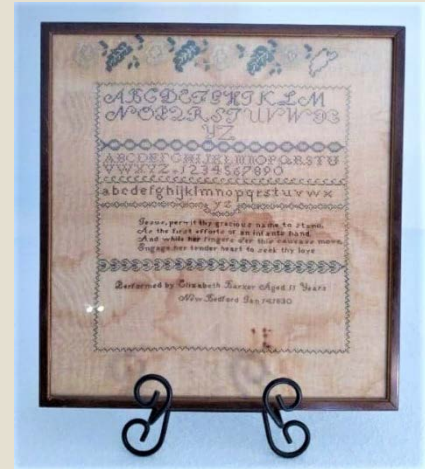 ABCDEFGHIJKLM
NOPQRSTUVWX
YZ
ABCDEFGHIJKLMNOPQRSTU
VWXYZ.1234567890
abcdefghijklmnopqrstuvwx
yz
Jesus, permit thy gracious name to stand,
As the first efforts of an infants hand
And while her fingers o'er this canvass move,
Engage her tender heart to seek thy love
Performed by Elizabeth Barker Aged 11 Years
New Bedford Jan 1830